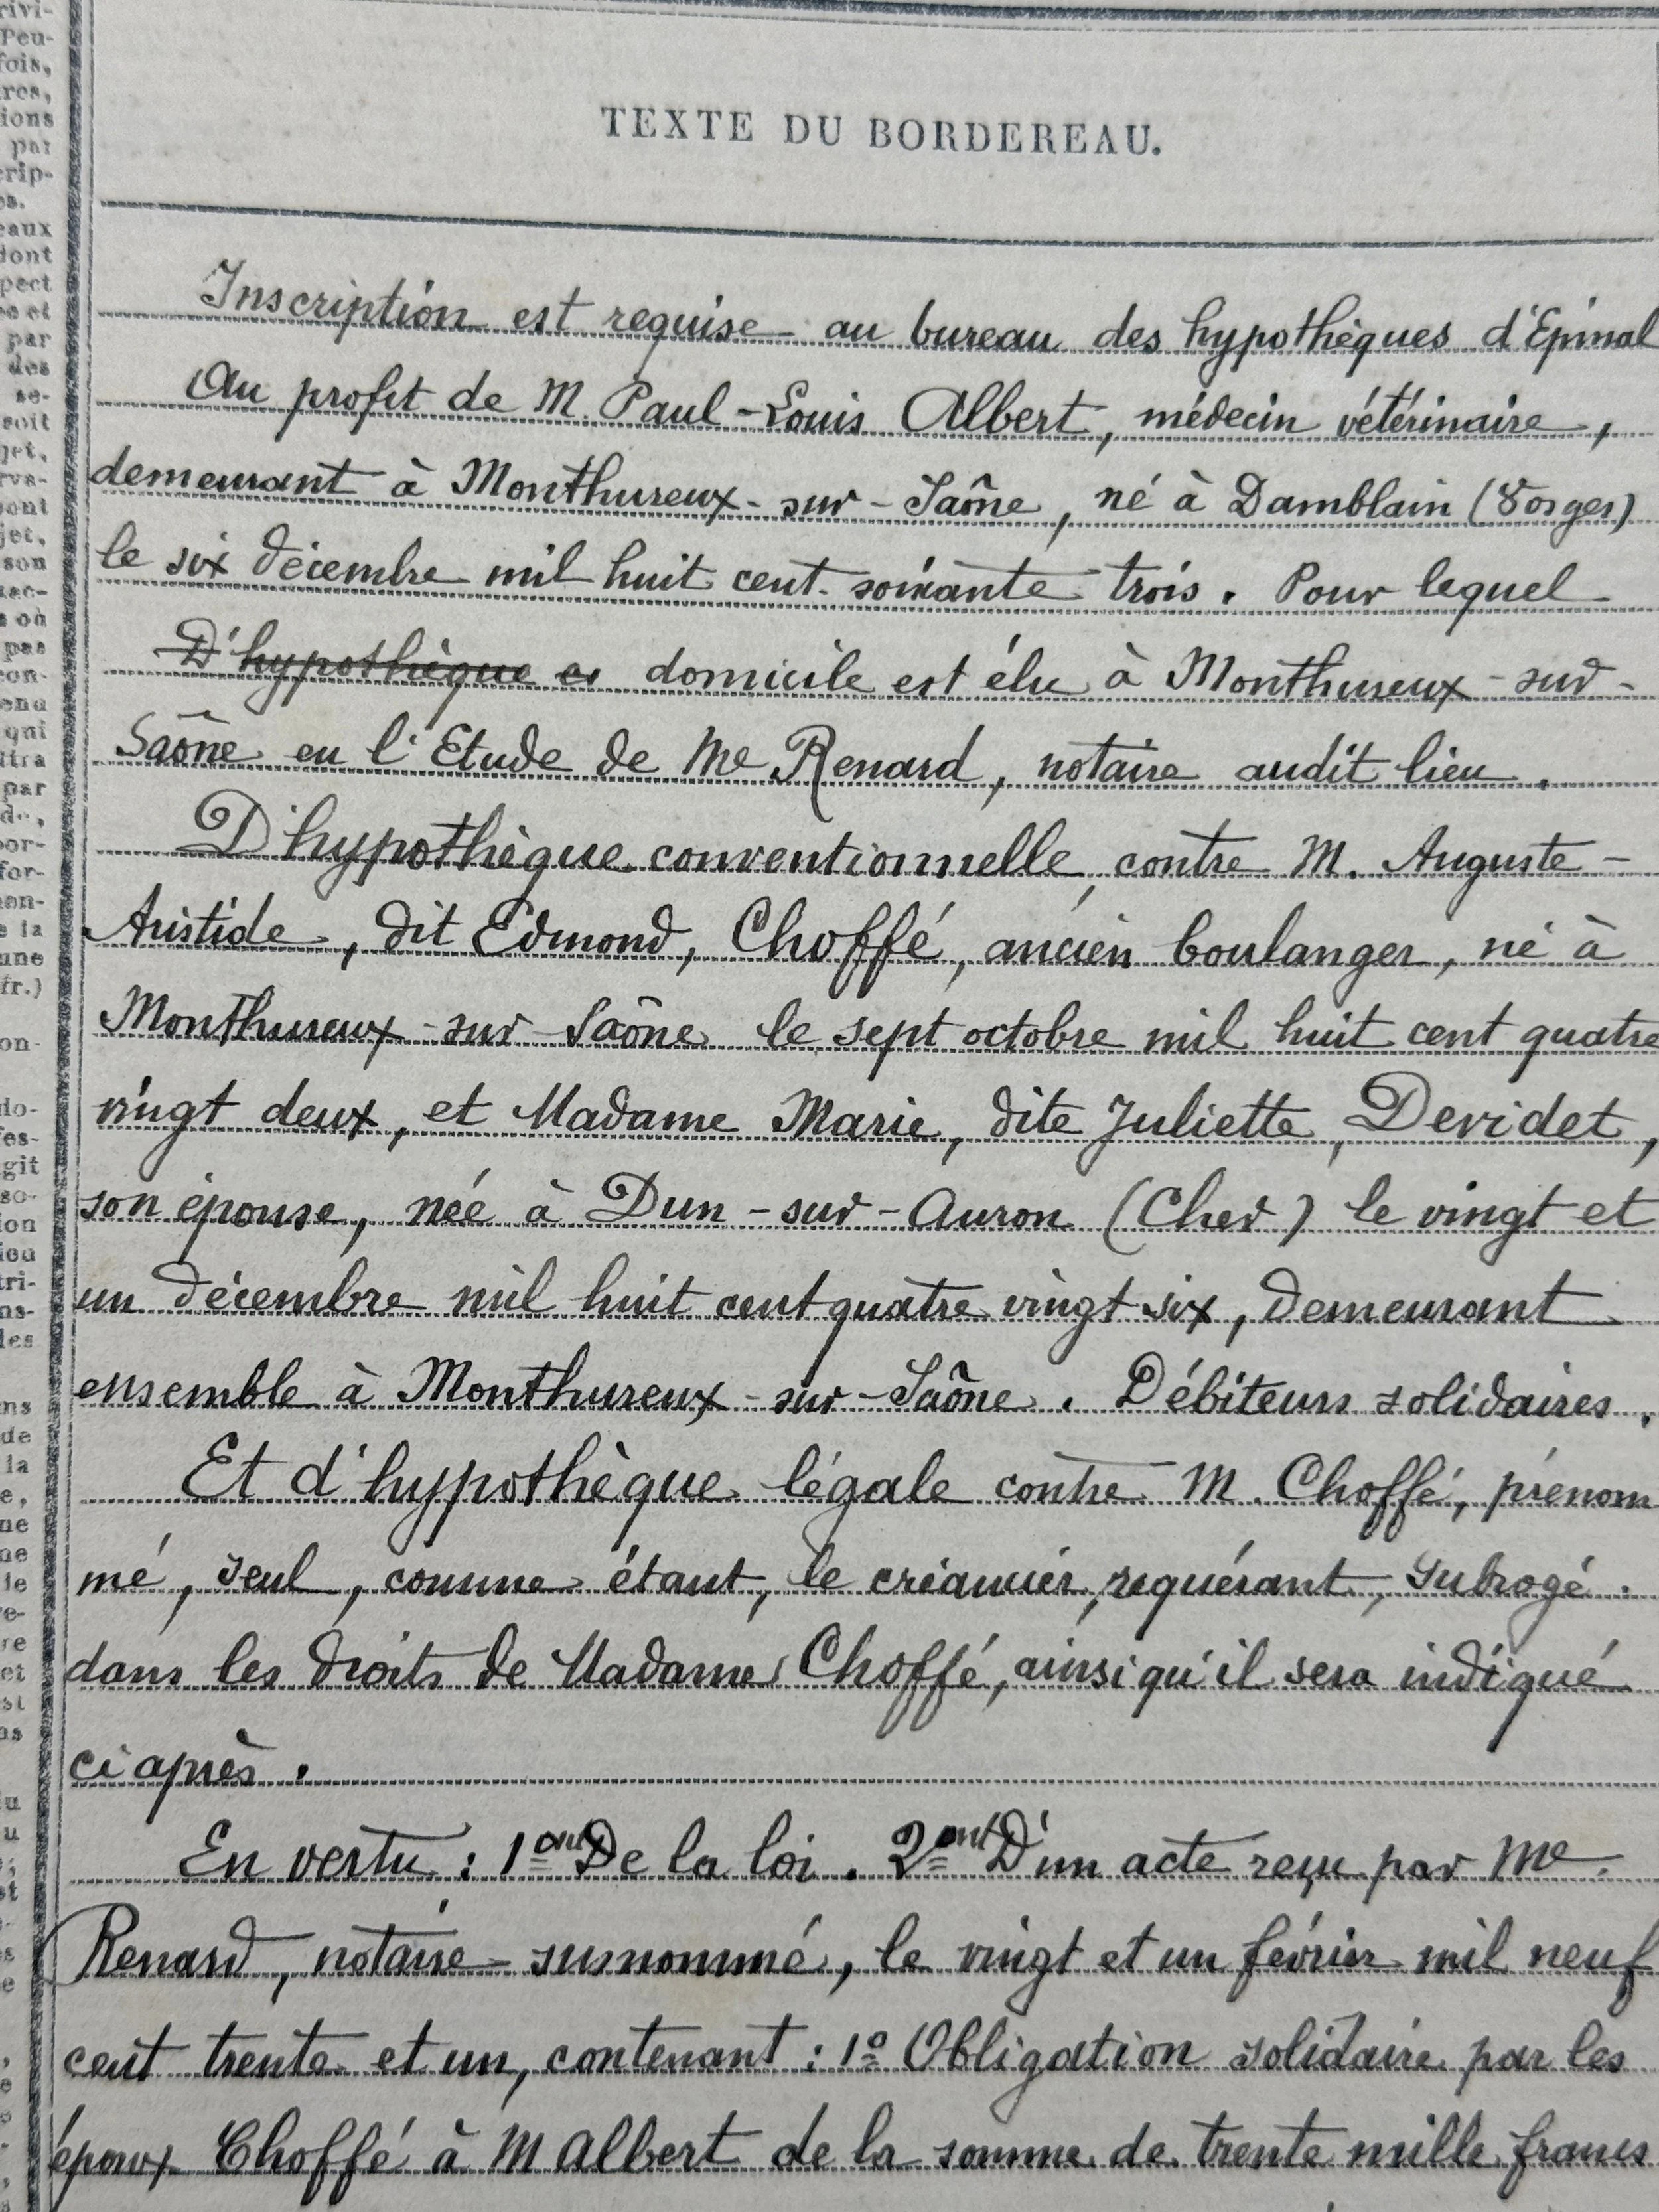 TEXTE DU BORDEREAU.
Inscription est requise au bureau des hypothèques d'Epinal
Au profit de M. Paul-Louis Albert, médecin vétérinaire,
demeurant à Monthureux-sur-Saône, né à Damblain (Vosges)
le six décembre mil huit cent soixante trois. Pour lequel
D'hypothèque domicile est élu à Monthureux-sur-
Saône en l'Etude de Me Renard, notaire audit lieu.
D'hypothèque conventionnelle, contre M. Auguste-
Aristide, dit Edmond, Choffé, ancien boulanger, né à
Monthureux-sur-Saône le sept octobre mil huit cent quatre
vingt deux, et Madame Marie, dite Juliette, Devidet,
son épouse, née à Dun-sur-Auron (Cher) le vingt et
un décembre mil huit cent quatre vingt six, demeurant
ensemble à Monthureux-sur-Saône. Débiteurs solidaires.
Et d'hypothèque légale contre M. Choffé, prénom
mé, seul, comme étant, le créancier, requérant, subrogé.
dans les droits de Madame Choffé, ainsi qu'il sera indiqué
ci après.
En vertu : 1ent De la loi. 2ent D'un acte reçu par Me
Renard, notaire susnommé, le vingt et un février mil neuf
cent trente et un, contenant : 1º Obligation solidaire par les
époux Choffé à M Albert de la somme de trente mille francs